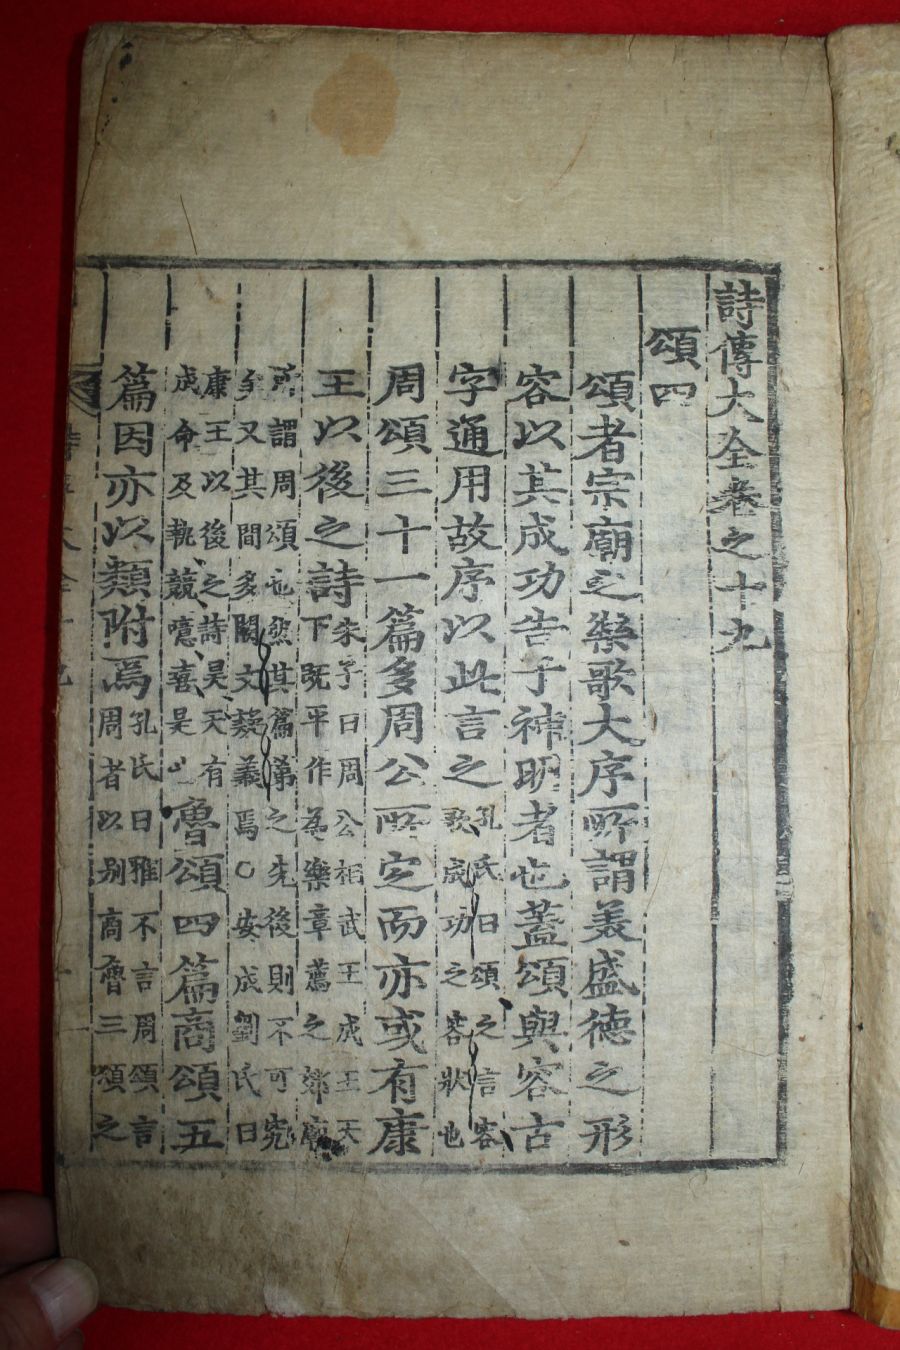 詩傳大全卷之十九
頌四
頌者宗廟之樂歌大序所謂美盛德之形
容以其成功告于神明者也蓋頌與容古
字通用故序以此言之孔氏曰頌之言容
歌成功之容狀也
周頌三十一篇多周公所定而亦或有康
王以後之詩朱子曰周公相武王成王天
下既平作為樂章薦之郊廟
所謂周頌也然其篇第之先後則不可究
矣又其間多闕文疑義焉○安成劉氏曰
康王以後之詩昊天有
成命及執競噫嘻是也魯頌四篇商頌五
篇因亦以類附焉孔氏曰雅不言周頌言
周者以別商魯三頌之